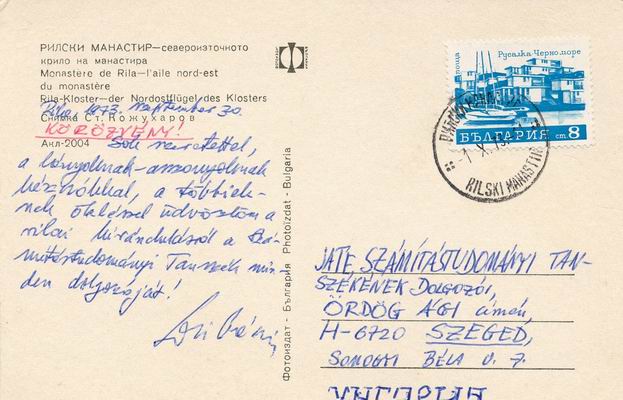 РИЛСКИ МАНАСТИР—североизточното
крило на манастира
Monastère de Rila—l'aile nord-est
du monastère
Rila-Kloster—der Nordostflügel des Klosters
Снимка Ст. Кожухаров
Акл-2004
Rila, 1973. szeptember 30.
KÖRÖZVÉNY!
Sok szeretettel,
a lányoknak-asszonyoknak
kézcsókkal, a többiek-
nek öleléssel üdvözlöm a
rilai kirándulásról a Szá-
mítástudományi Tanszék min-
den dolgozóját!
Фотоиздат - България Photoizdat - Bulgaria
поща
Русалка-Черно море
БЪЛГАРИЯ ст. 8
RILSKI MANASTIR
JATE, SZÁMÍTÁSTUDOMÁNYI TAN-
SZÉKÉNEK DOLGOZÓI,
ÖRDÖG ÁGI címén,
H-6720 SZEGED,
SOMOGYI BÉLA U. 7.
УНГАРИЯ